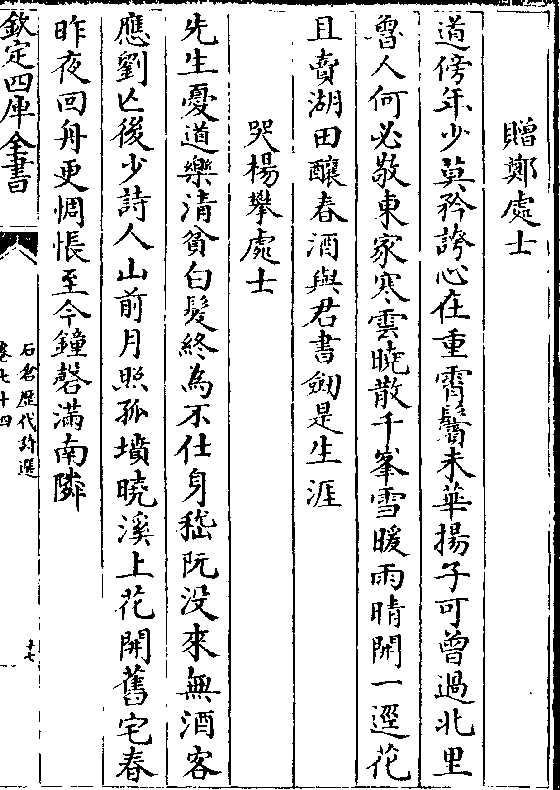 贈鄭處士
道傍年少莫矜誇心在重霄鬢未華揚子可曾過北里
魯人何必敬東家寒雲曉散千峯雪暖雨晴開一逕花
且賣湖田釀春酒與君書劒是生涯
哭楊攀處士
先生憂道樂清貧白髮終為不仕身嵇阮没來無酒客
應劉亡後少詩人山前月照孤墳曉溪上花開舊宅春
昨夜回舟更惆悵至今鐘磬滿南隣
欽定四庫全書
石倉歷代詩選
卷七十四
十七